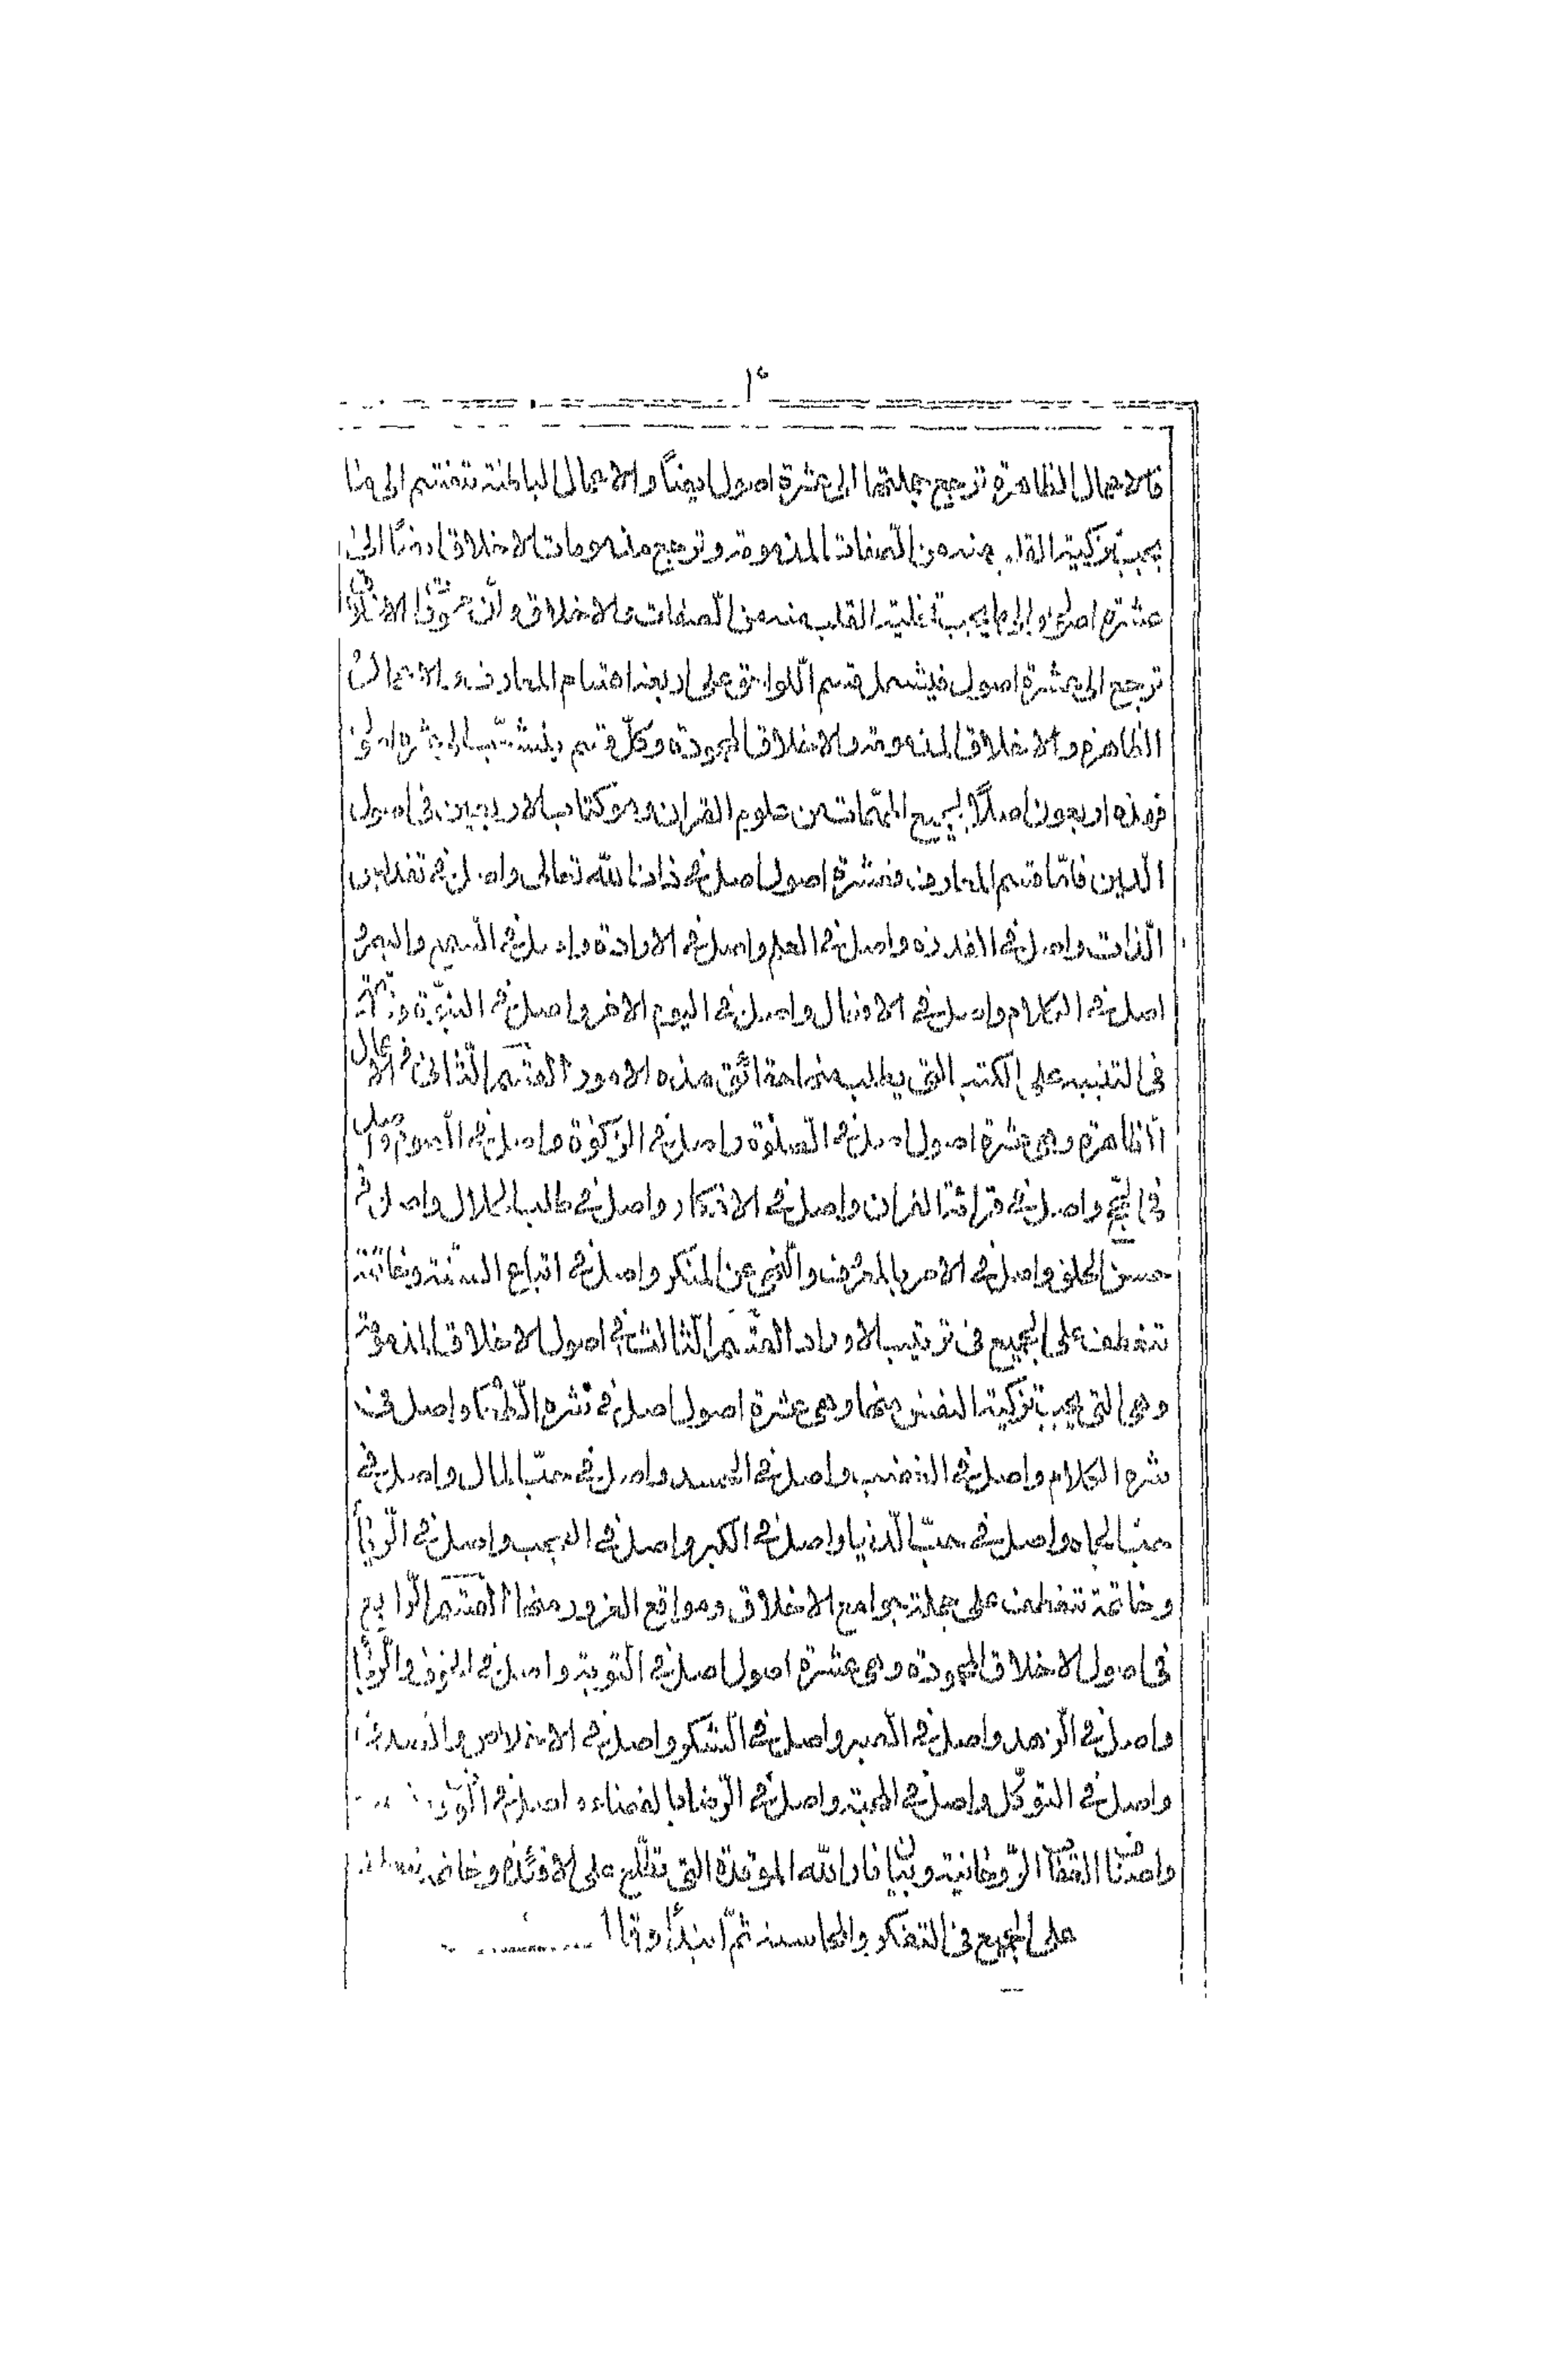 ١٠
فالاعمال الظاهرة ترجع جملتها الى عشرة اصول ايضاً والاعمال الباطنة تنقسم الى ما
يجب تزكية القلب منه من الصفات المذمومة وترجع مذمومات الاخلاق ايضًا الى
عشرة اصول والى ما يجب تحلية القلب منه من الصفات والاخلاق وان محمودات الاخلاق
ترجع الى عشرة اصول فيشتمل قسم اللواحق على اربعة اقسام المعارف والاعمال
الظاهرة والاخلاق المذمومة والاخلاق المحمودة وكلّ قسم ينشعّب الى عشرة اصول
فهذه اربعون اصلاً لجميع المهمّات من علوم القران وهو كتاب الاربعين فى اصول
الدّين فامّا قسم المعارف فعشرة اصول اصل فى ذات الله تعالى واصل فى تقديس
الذّات واصل فى القدرة واصل فى العلم واصل فى الارادة واصل فى السّمع والبصر و
اصل فى الكلام واصل فى الافعال واصل فى اليوم الاخر واصل فى النبوّة وخاتمة
فى التنبيه على الكتب التى يطلب منها حقائق هذه الامور القسم الثّانى فى الاعمال
الظّاهرة وهى عشرة اصول اصل فى الصّلوة واصل فى الزّكوة واصل فى الصّوم واصل
فى الحجّ واصل فى قرائة القران واصل فى الاذكار واصل فى طلب الحلال واصل فى
حسن الخلق واصل فى الامر بالمعروف والنّهى عن المنكر واصل فى اتباع السّنّة وخاتمة
تنعطف على الجميع فى ترتيب الاوراد القسم الثّالث فى اصول الاخلاق المذمومة
وهى التى يجب تزكية النفس منها وهى عشرة اصول اصل فى شره الطّعام واصل فى
شره الكلام واصل فى الغضب واصل فى الحسد واصل فى حبّ المال واصل فى
حبّ الجاه واصل فى حبّ الدّنيا واصل فى الكبر واصل فى العجب واصل فى الرّياء
وخاتمة تنعطف على جملة جوامع الاخلاق ومواقع الغرور منها القسم الرّابع
فى اصول الاخلاق المحمودة وهى عشرة اصول اصل فى التّوبة واصل فى الخوف والرّجاء
واصل فى الزّهد واصل فى الصّبر واصل فى الشّكر واصل فى الاخلاص والصدق
واصل فى التوكّل واصل فى المحبّة واصل فى الرّضا بالقضاء واصل فى
الرّوحانية نار الله الموقدة التى تطّلع على الافئدة وخاتمة
على الجميع فى التفكر والمحاسبة ثمّ